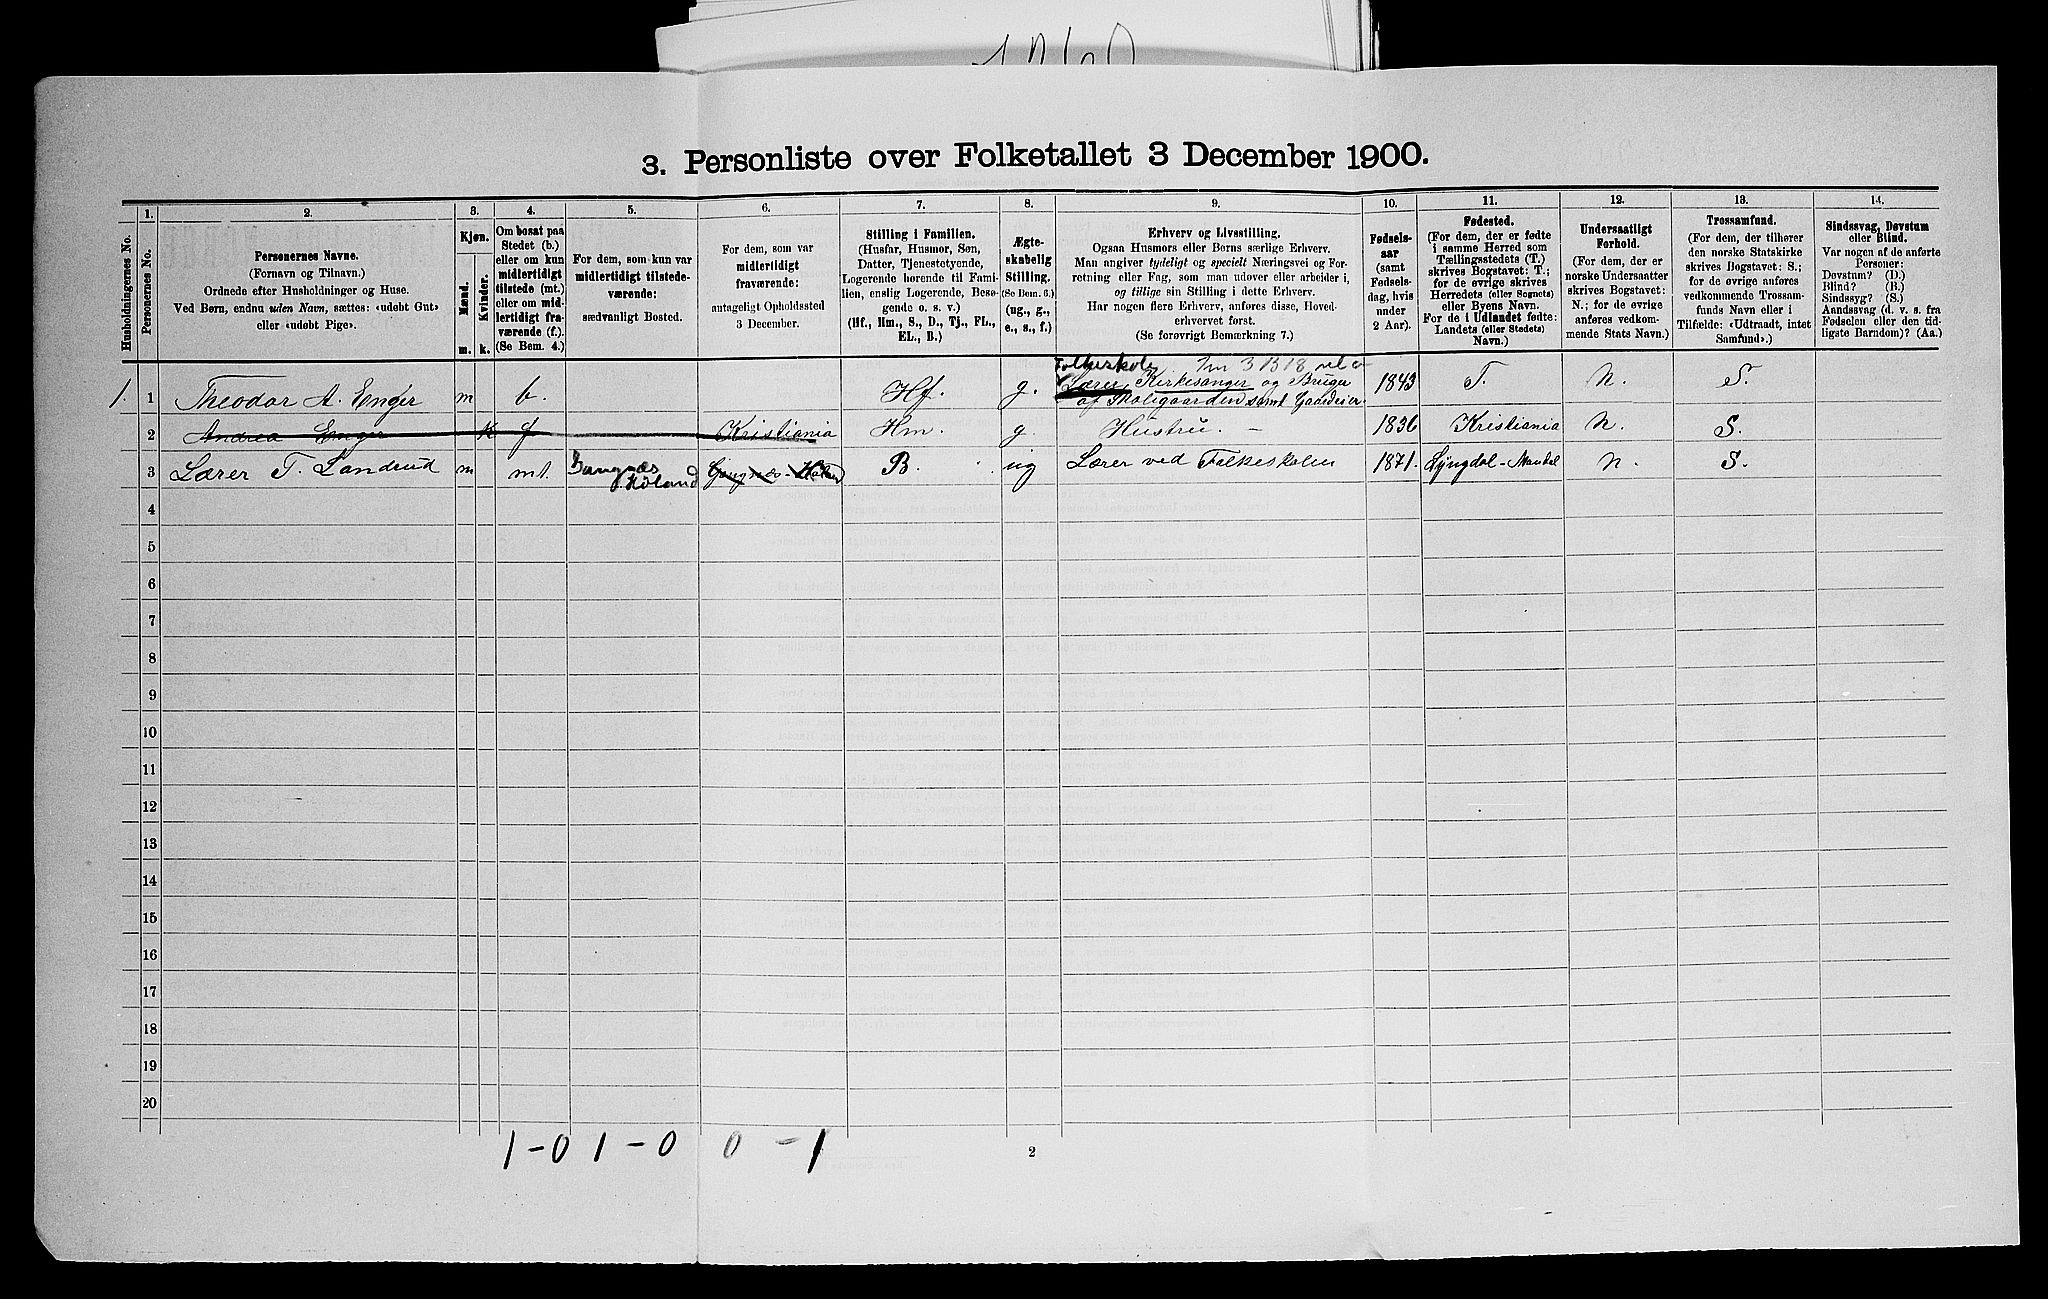 3. Personliste over Folketallet 3 December 1900.
Husholdningernes No.
1.
Personernes No.
2.
Personernes Navne.
(Fornavn og Tilnavn.)
Ordnede efter Husholdninger og Huse.
Ved Børn, endnu uden Navn, sættes: «udøbt Gut»
eller «udøbt Pige».
3.
Kjøn.
Mænd.
Kvinder.
m. k.
4.
Om bosat paa
Stedet (b.)
eller om kun
midlertidigt
tilstede (mt.)
eller om mid-
lertidigt fra-
værende (f.)
(Se Bem. 4.)
5.
For dem, som kun var
midlertidigt tilstede-
værende:
sædvanligt Bosted.
6.
For dem, som var
midlertidigt
fraværende:
antageligt Opholdssted
3 December.
7.
Stilling i Familien.
(Husfar, Husmor, Søn,
Datter, Tjenestetyende,
Logerende hørende til Fami-
lien, enslig Logerende, Besø-
gende o. s. v.)
(Hf., Hm., S., D., Tj., FL.,
EL., B.)
8.
Ægte-
skabelig
Stilling.
(Se Bem. 6.)
(ug., g.,
e., s., f.)
9.
Erhverv og Livsstilling.
Ogsaa Husmors eller Børns særlige Erhverv.
Man angiver tydeligt og specielt Næringsvei og For-
retning eller Fag, som man udøver eller arbeider i,
og tillige sin Stilling i dette Erhverv.
Har nogen flere Erhverv, anføres disse, Hoved-
erhvervet først.
(Se forøvrigt Bemærkning 7.)
10.
Fødsels-
aar
(samt
Fødsels-
dag, hvis
under
2 Aar).
11.
Fødested.
(For dem, der er fødte
i samme Herred som
Tællingsstedets (T.)
skrives Bogstavet: T.;
for de øvrige skrives
Herredets (eller Sognets)
eller Byens Navn.
For de i Udlandet fødte:
Landets (eller Stedets)
Navn.)
12.
Undersaatligt
Forhold.
(For dem, der er
norske Undersaatter
skrives Bogstavet:
N.; for de øvrige
anføres vedkom-
mende Stats Navn.)
13.
Trossamfund.
(For dem, der tilhører
den norske Statskirke
skrives Bogstavet: S.;
for de øvrige anføres
vedkommende Trossam-
funds Navn eller i
Tilfælde: «Udtraadt, intet
Samfund».)
14.
Sindssvag, Døvstum
eller Blind.
Var nogen af de anførte
Personer:
Døvstum? (D.)
Blind? (B.)
Sindssyg? (S.)
Aandssvag (d. v. s. fra
Fødselen eller den tid-
ligste Barndom)? (Aa.)
Folkeskole
1. 1 Theodor A. Enger m b. Hf. g. Lærer, Kirkesanger og Bruger 1843 T. N. S.
af Skolegaarden samt Gaardeier
2 Andrea Enger k f Kristiania Hm g. Hustru. – 1836 Kristiania N. S.
3 Lærer T. Landrud m mt. B. ug Lærer ved Folkeskolen 1871. Lyngdal-Mandal N. S.
Høland
4
5
6
7
8
9
10
11
12
13
14
15
16
17
18
19
20
1-0 1-0 0-1
2